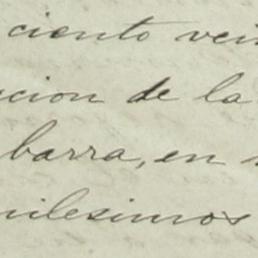 ciento vein
cion de la
barra, en
milesimos